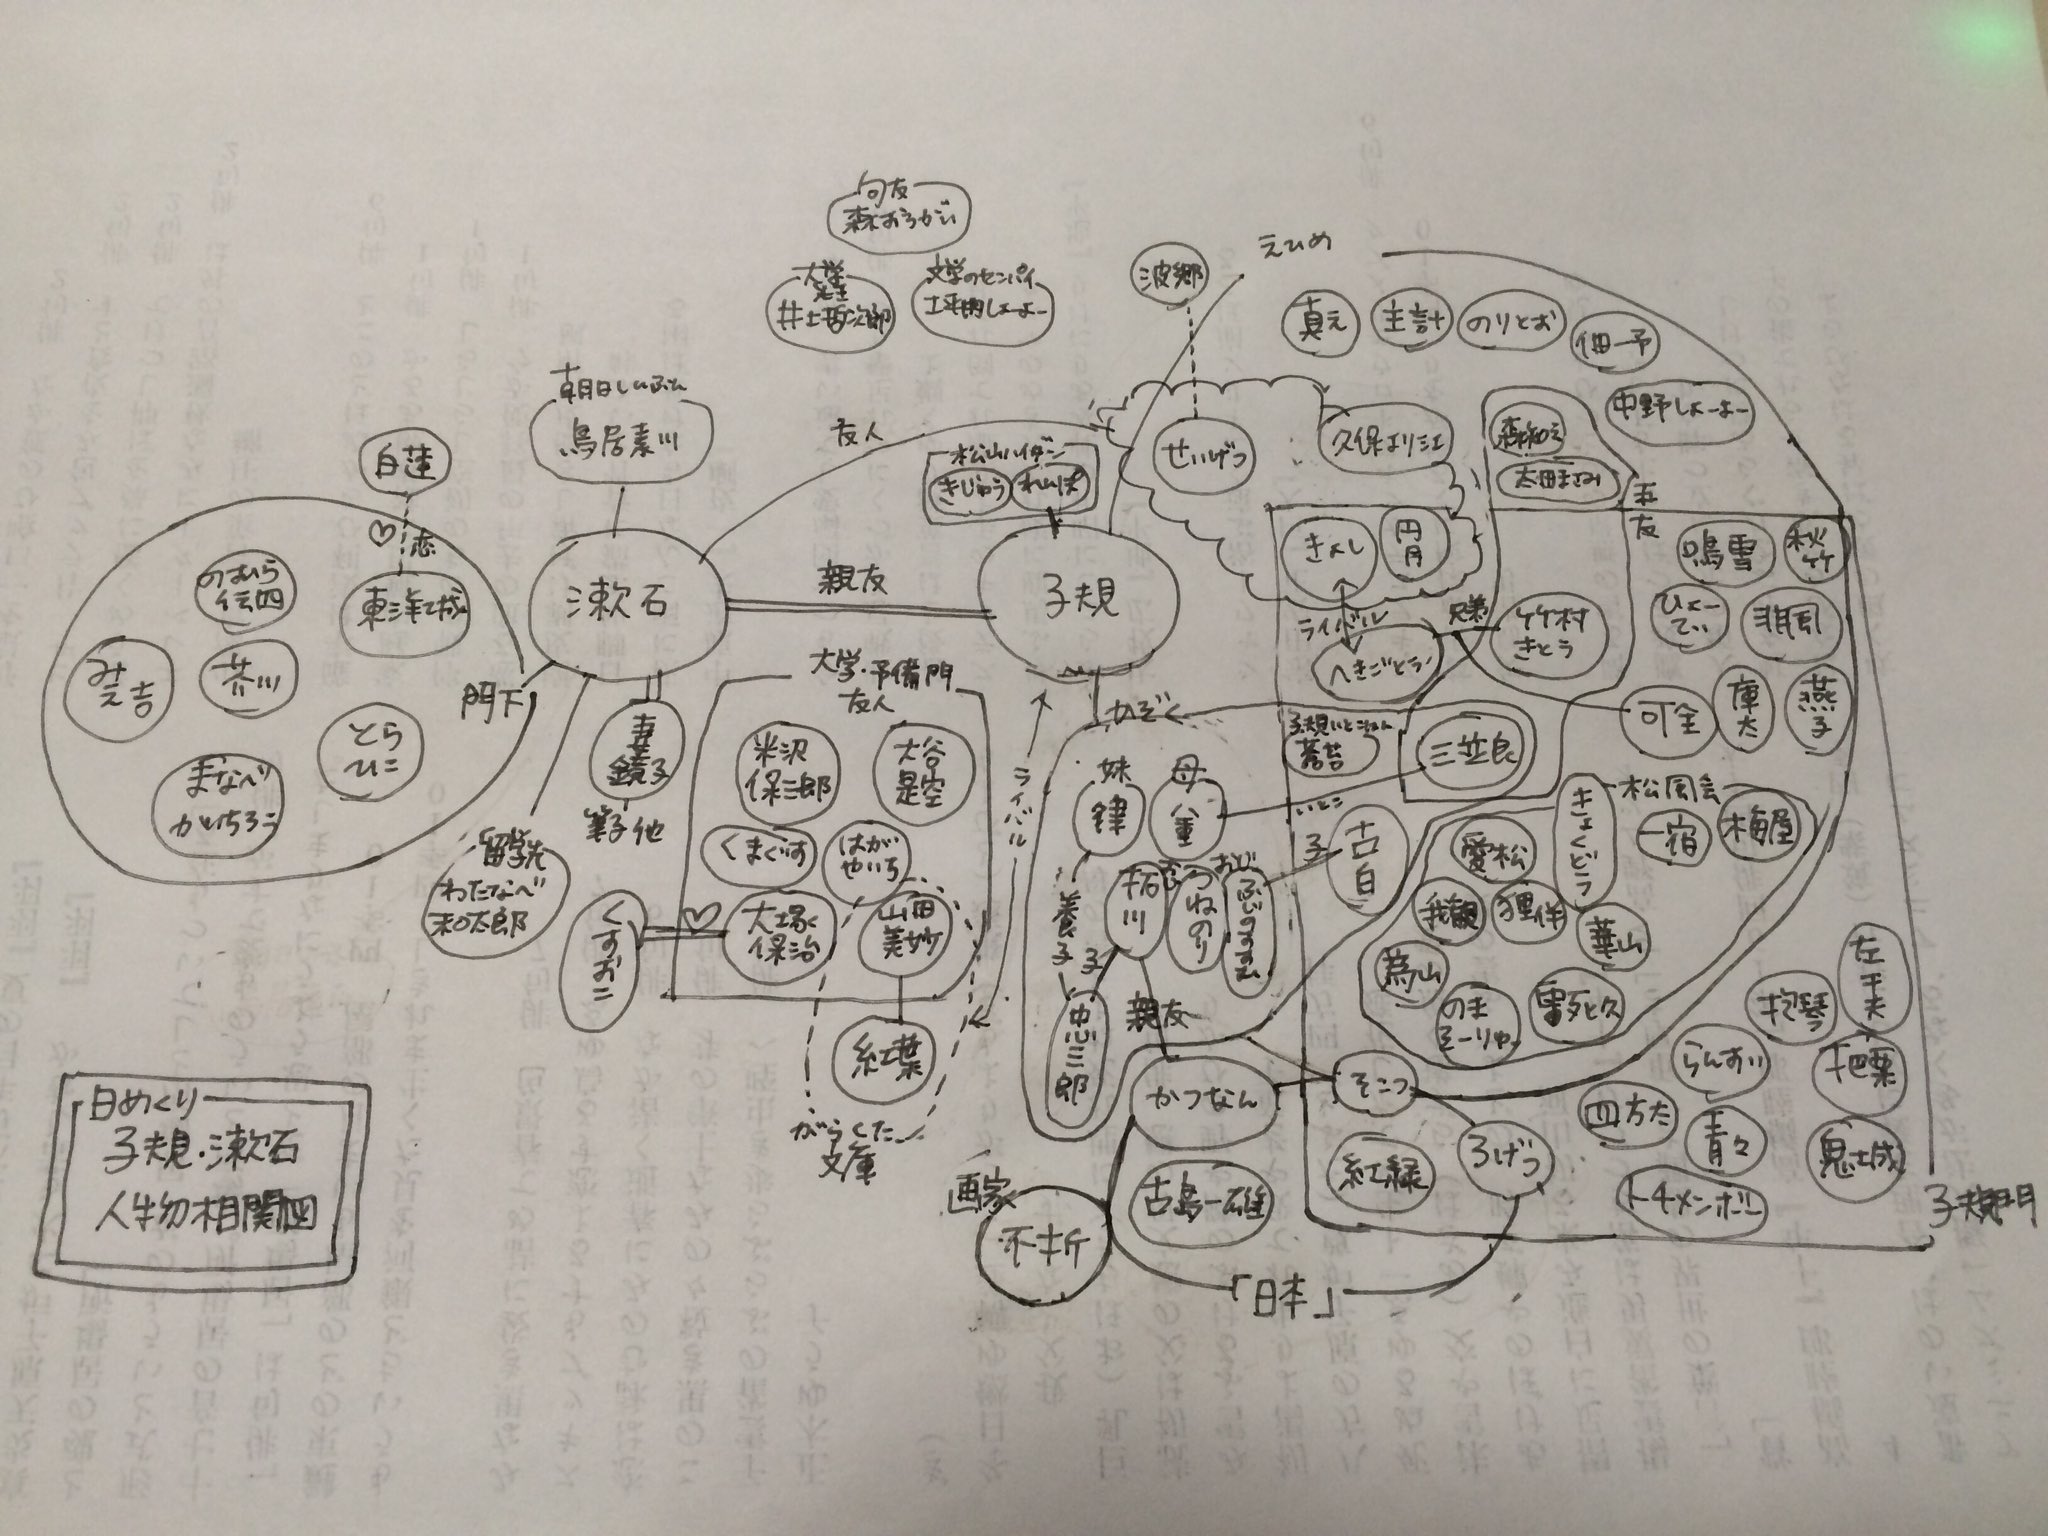 句友
森おうがい
大学
先生
井上哲次郎
文学のセンパイ
坪内しょーよー
波郷
えひめ
真え
主計
のりとお
佃一予
中野しょーよー
朝日しんぶん
鳥居素川
白蓮
恋
のむら
伝四
東洋城
みえ吉
芥川
とら
ひこ
まなべ
かいちろう
門下
漱石
親友
子規
友人
松山ハイダン
きじゅう
れんぱ
せいげつ
久保より江
森知え
太田まさみ
五友
きよし
円月
ライバル
へきごとう
兄弟
竹村
きとう
鳴雪
秋竹
ひょー
てい
非風
可全
庫太
燕子
妻
鏡子
筆子他
留学先
わたなべ
和太郎
大学・予備門
友人
米沢
保三郎
大谷
是空
くまぐす
はが
やいち
大塚
保治
山田
美妙
くすおこ
紅葉
がらくた
文庫
ライバル
かぞく
妹
律
母
八重
養子
子
忠三郎
おじ
拓川
つねのり
親友
いとこ
子
三並良
蒼苔
古白
松風会
きょくどう
一宿
梅屋
愛松
我観
狸伴
華山
為山
のま
そーりゅー
かつなん
そこつ
古島一雄
紅緑
ろげつ
画家
不折
「日本」
左千夫
抱琴
らんすい
把栗
四方太
青々
鬼城
トチメンボー
子規門
日めくり
子規・漱石
人物相関図